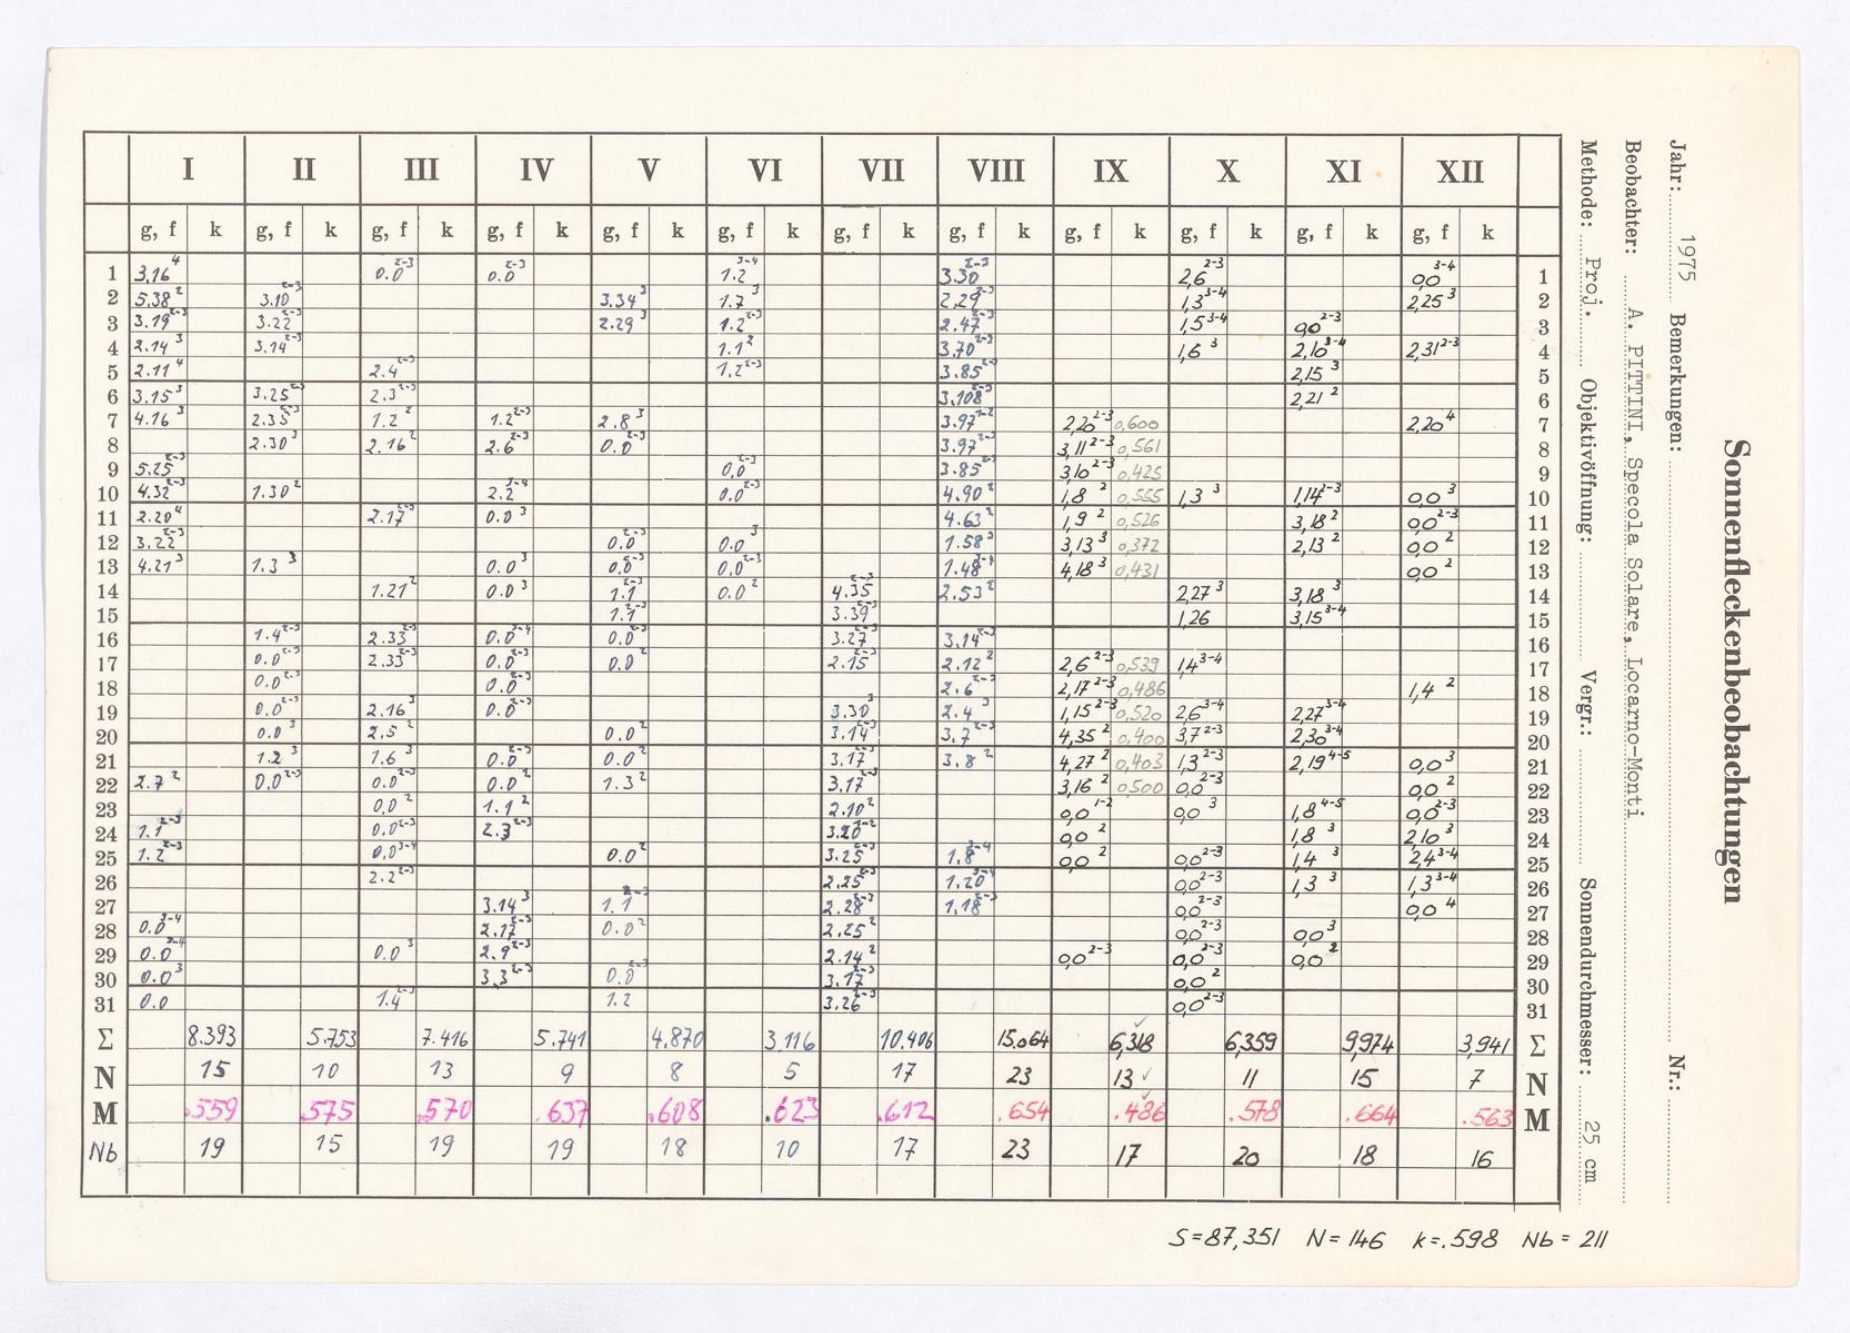 Sonnenfleckenbeobachtungen
Jahr: 1975 Bemerkungen: Nr.:
Beobachter: A. PITTINI, Specola Solare, Locarno-Monti
Methode: Proj. Objektivöffnung: Vergr.: Sonnendurchmesser: 25 cm
I II III IV V VI VII VIII IX X XI XII
g, f k g, f k g, f k g, f k g, f k g, f k g, f k g, f k g, f k g, f k g, f k g, f k
1 3.16⁴ 0.0²⁻³ 0.0²⁻³ 1.2³⁻⁴ 3.30²⁻³ 2,6²⁻³ 0,0³⁻⁴ 1
2 5.38² 3.10²⁻³ 3.34³ 1.7³ 2.29²⁻³ 1,3³⁻⁴ 2,25³ 2
3 3.19²⁻³ 3.22²⁻³ 2.29³ 1.2²⁻³ 2.47²⁻³ 1,5³⁻⁴ 0,0²⁻³ 3
4 2.14³ 3.14²⁻³ 1.1² 3.70²⁻³ 1,6³ 2,10³⁻⁴ 2,31²⁻³ 4
5 2.11⁴ 2.4²⁻³ 1.2²⁻³ 3.85²⁻³ 2,15³ 5
6 3.15³ 3.25²⁻³ 2.3²⁻³ 3.108²⁻³ 2,21² 6
7 4.16³ 2.35²⁻³ 1.2² 1.2²⁻³ 2.8³ 3.97¹⁻² 2,20²⁻³ 0,600 2,20⁴ 7
8 2.30³ 2.16² 2.6²⁻³ 0.0²⁻³ 3.97²⁻³ 3,11²⁻³ 0,561 8
9 5.25²⁻³ 0,0²⁻³ 3.85²⁻³ 3,10²⁻³ 0,425 9
10 4.32²⁻³ 1.30² 2.2³⁻⁴ 0.0²⁻³ 4.90² 1,8² 0,555 1,3³ 1,14²⁻³ 0,0³ 10
11 2.20⁴ 2.17²⁻³ 0.0³ 4.63² 1,9² 0,526 3,18² 0,0²⁻³ 11
12 3.22²⁻³ 0.0²⁻³ 0.0³ 1.58³ 3,13³ 0,372 2,13² 0,0² 12
13 4.21³ 1.3³ 0.0³ 0,0²⁻³ 0.0²⁻³ 1.48³⁻⁴ 4,18³ 0,431 0,0² 13
14 1.21² 0.0³ 1.1²⁻³ 0.0² 4.35²⁻³ 2.53² 2,27³ 3,18³ 14
15 1.1²⁻³ 3.39²⁻³ 1,26 3,15³⁻⁴ 15
16 1.4²⁻³ 2.33²⁻³ 0.0³⁻⁴ 0.0²⁻³ 3.27²⁻³ 3.14²⁻³ 16
17 0.0²⁻³ 2.33²⁻³ 0.0²⁻³ 0.0² 2.15²⁻³ 2.12² 2,6²⁻³ 0,539 1,4³⁻⁴ 17
18 0.0²⁻³ 0.0²⁻³ 2.6²⁻³ 2,17²⁻³ 0,486 1,4² 18
19 0.0²⁻³ 2.16³ 0.0²⁻³ 3.30³ 2.4³ 1,15²⁻³ 0,520 2,6³⁻⁴ 2,27³⁻⁴ 19
20 0.0³ 2.5² 0.0² 3.14²⁻³ 3.7²⁻³ 4,35² 0,400 3,7²⁻³ 2,30³⁻⁴ 20
21 1.2³ 1.6³ 0.0²⁻³ 0.0² 3.17²⁻³ 3.8² 4,27² 0,403 1,3²⁻³ 2,19⁴⁻⁵ 0,0³ 21
22 2.7² 0.0²⁻³ 0.0²⁻³ 0.0² 1.3² 3.17²⁻³ 3,16² 0,500 0,0²⁻³ 0,0² 22
23 0,0² 1.1² 2.10² 0,0¹⁻² 0,0³ 1,8⁴⁻⁵ 0,0²⁻³ 23
24 1.1²⁻³ 0.0²⁻³ 2.3²⁻³ 3.20¹⁻² 0,0² 1,8³ 2,10³ 24
25 1.2²⁻³ 0.0³⁻⁴ 0.0² 3.25²⁻³ 1,8³⁻⁴ 0,0² 0,0²⁻³ 1,4³ 2,4³⁻⁴ 25
26 2.2²⁻³ 2.25²⁻³ 1.20³⁻⁴ 0,0²⁻³ 1,3³ 1,3³⁻⁴ 26
27 3.14³ 1.1²⁻³ 2.28²⁻³ 1.18²⁻³ 0,0²⁻³ 0,0⁴ 27
28 0.0³⁻⁴ 2.17²⁻³ 0.0² 2.25² 0,0²⁻³ 0,0³ 28
29 0.0³⁻⁴ 0.0³ 2.9²⁻³ 2.14² 0,0²⁻³ 0,0²⁻³ 0,0² 29
30 0.0³ 3.3²⁻³ 0.0²⁻³ 3.17²⁻³ 0,0² 30
31 0.0 1.4²⁻³ 1.2 3.26²⁻³ 0,0²⁻³ 31
Σ 8.393 5.753 7.416 5.741 4.870 3.116 10.406 15.064 6,318 6,359 9,974 3,941 Σ
N 15 10 13 9 8 5 17 23 13 11 15 7 N
M .559 .575 .570 .637 .608 .623 .612 .654 .486 .578 .664 .563 M
Nb 19 15 19 19 18 10 17 23 17 20 18 16
S = 87,351 N = 146 k = .598 Nb = 211